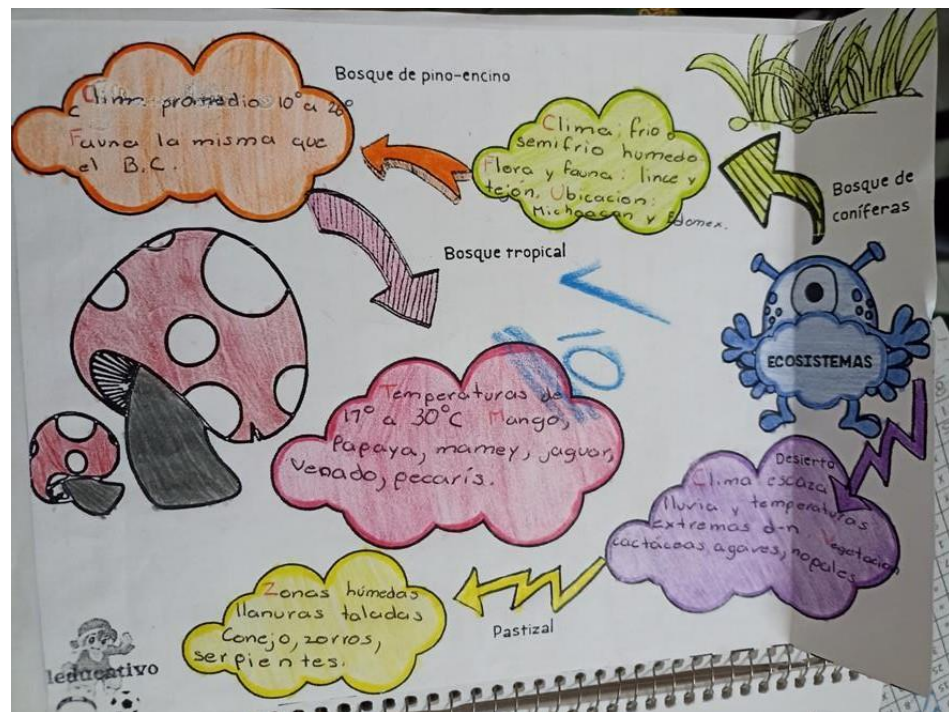 Bosque de pino-encino
Clima promedio 10° a 20°
C
Fauna la misma que
el B.C.
Clima: frio o
semifrio humedo
Flora y fauna: lince y
tejón. Ubicacion:
Michoacan y Edomex.
Bosque de
coníferas
Bosque tropical
ECOSISTEMAS
Temperaturas de
17° a 30°C Mango,
Papaya, mamey, jaguar,
venado, pecarís.
Desierto
Clima escaza
lluvia y temperaturas
extremas d-n Vegetacion
cactáceas, agaves, nopales
Zonas húmedas
llanuras taladas
Conejo, zorros,
serpientes.
Pastizal
leducativo